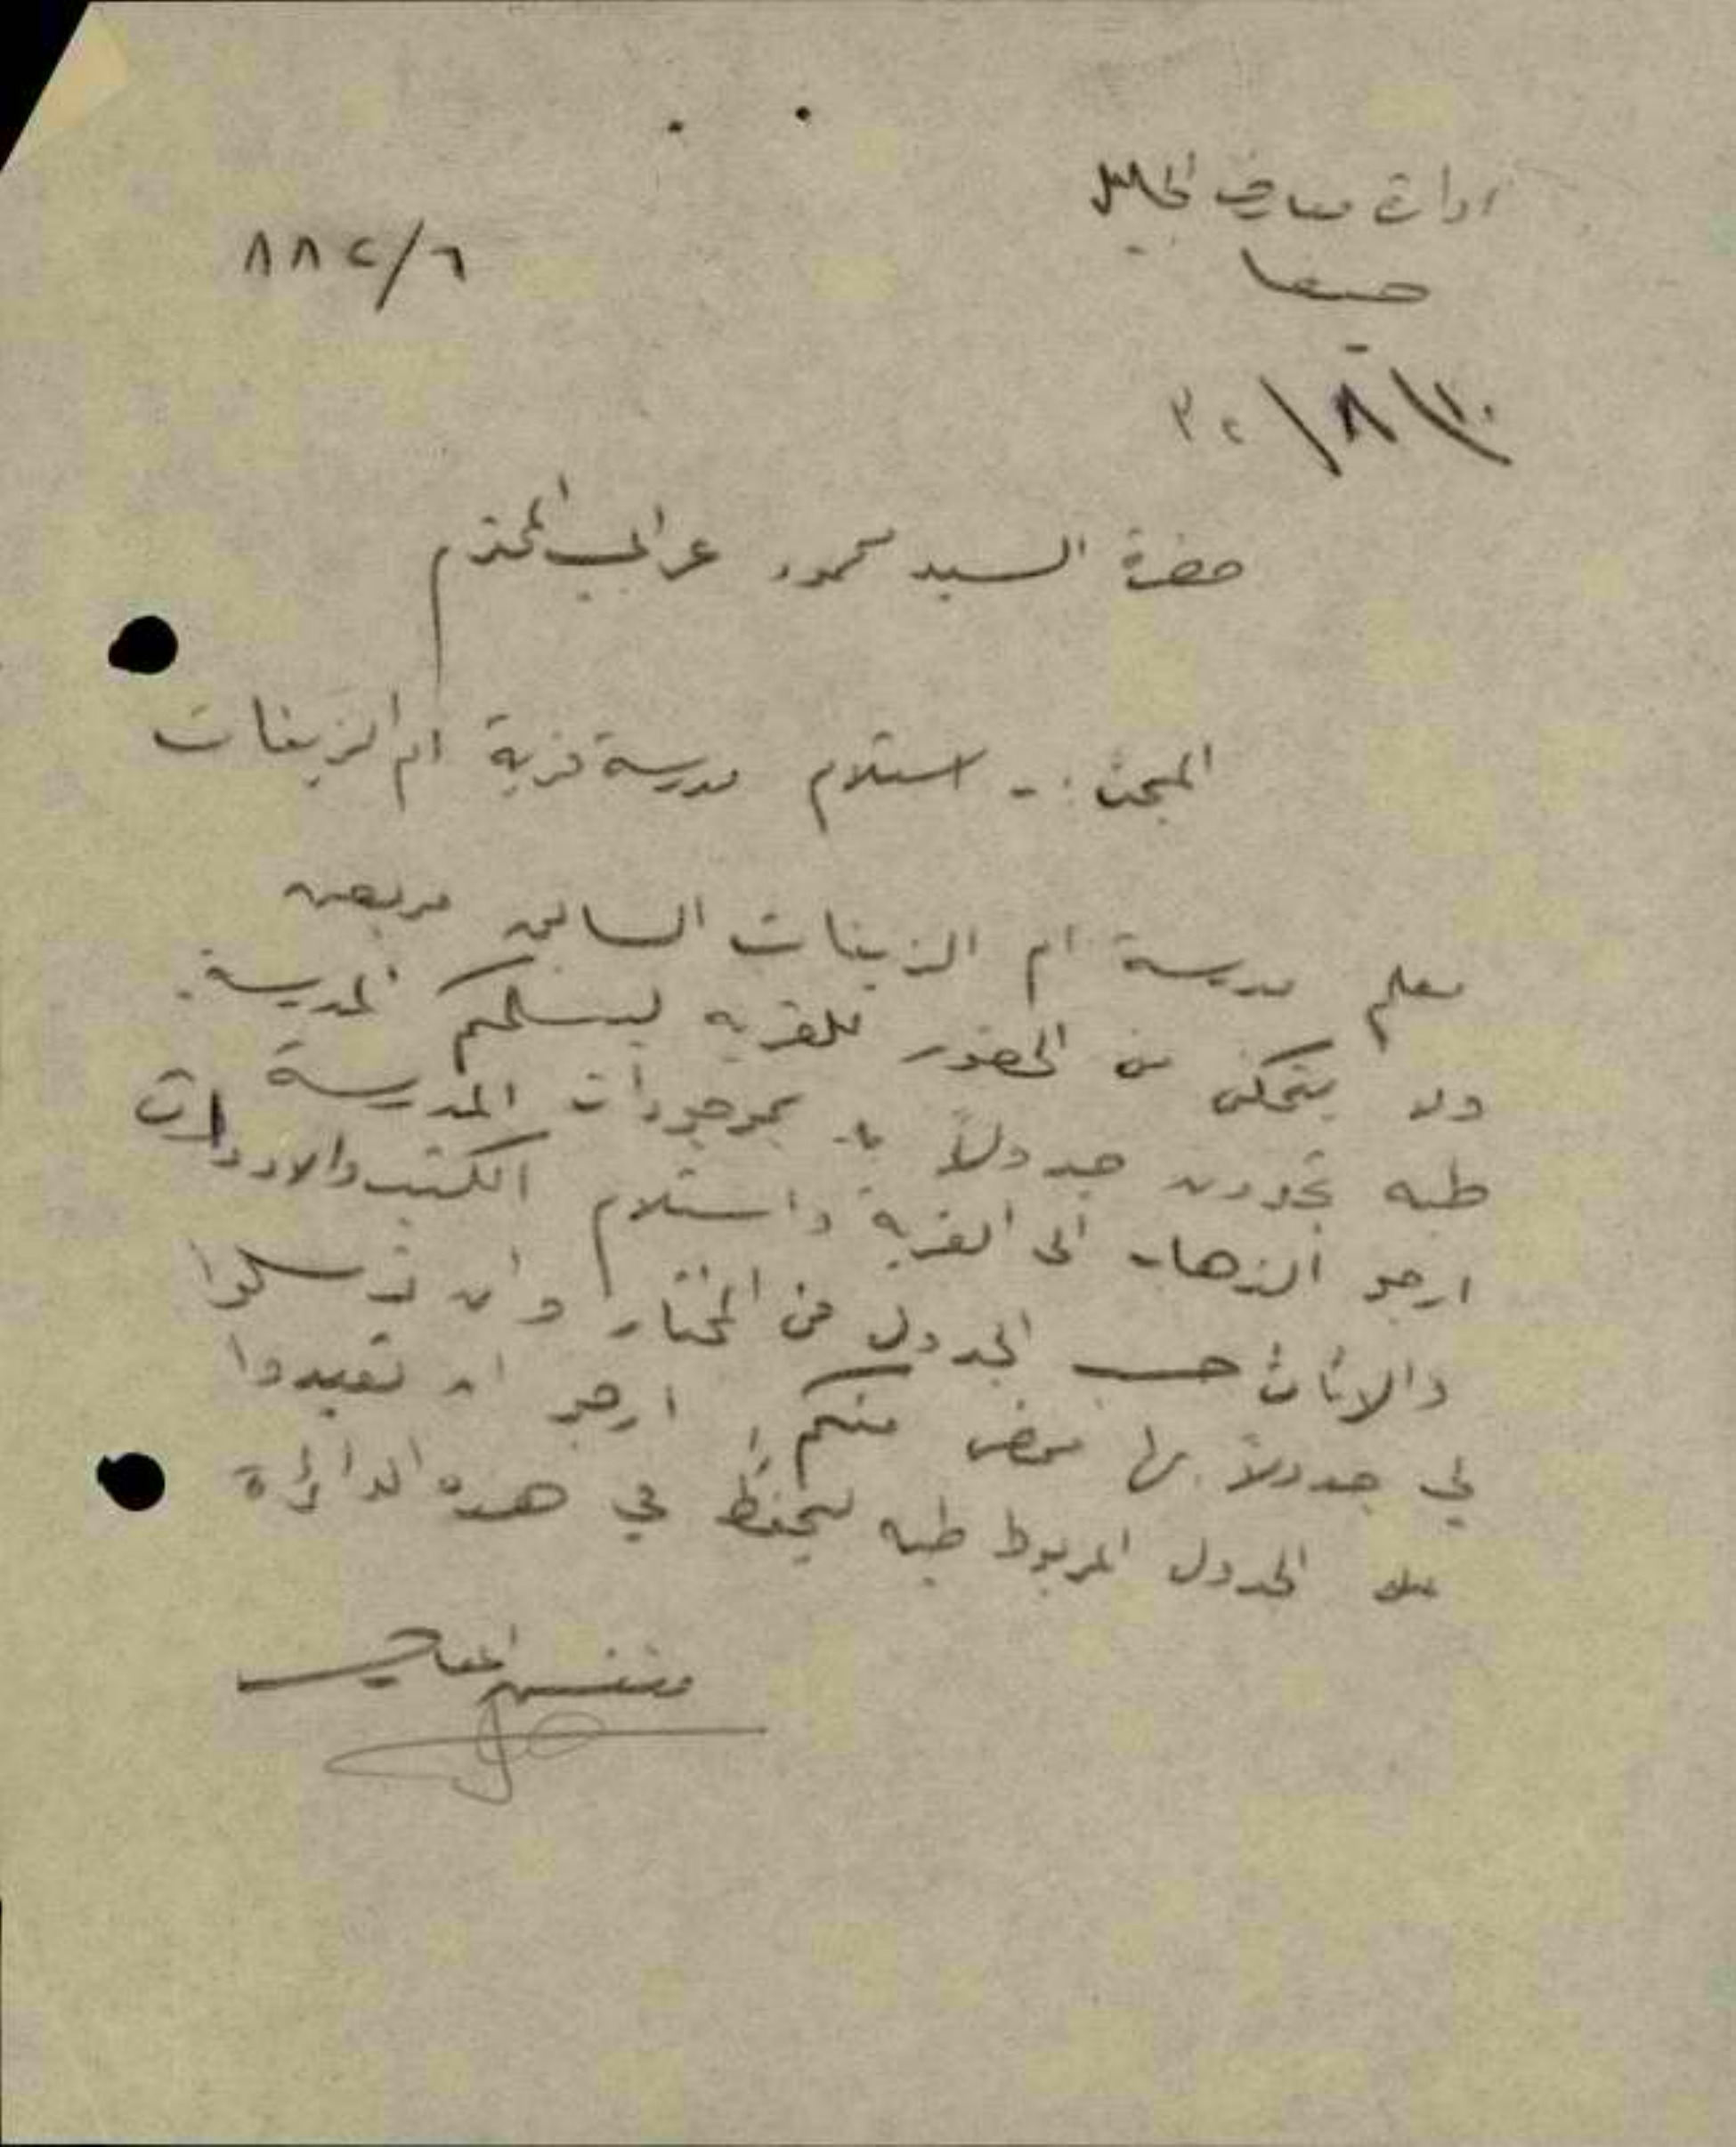 ادارة معارف الجليل
٨٨٢/٦
حيفا
٣٢/٨/١٠
حضرة السيد محمود عرابي المحترم
المبحث :- استلام مدرسة قرية ام الزينات
معلم مدرسة ام الزينات السابق مريض
ولا يتمكن من الحضور للقرية ليسلمكم المدرسة.
طيه تجدون جدولاً بموجودات المدرسة
ارجو الذهاب الى القرية واستلام الكتب والادوات
والاثاث حسب الجدول من المختار وان ترسلوا
لي جدولاً بها ممضى منكم، ارجو ان تعيدوا
الجدول المربوط طيه ليحفظ في هذه الدائرة
مفتش المعارف